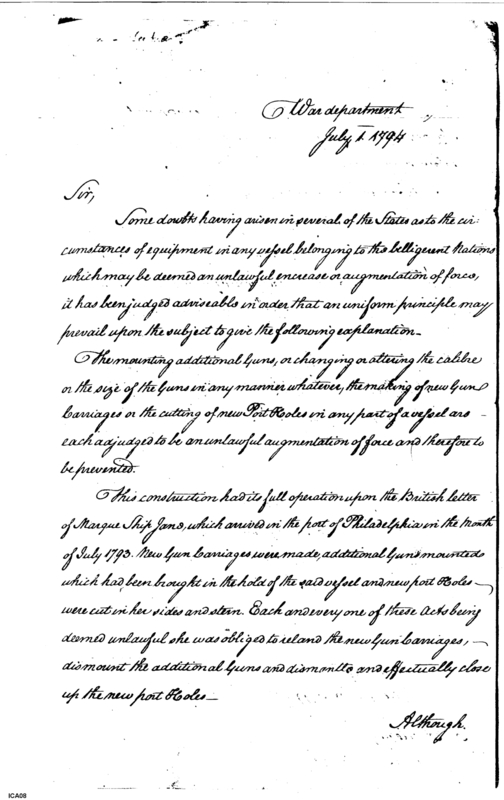 War department
July 1. 1794
Sir,
Some doubts having arisen in several of the States as to the cir:
cumstances of equipment in any vessel belonging to the belligerent Nations
which may be deemed an unlawful encrease or augmentation of force,
it has been judged adviseable in order that an uniform principle may
prevail upon the subject to give the following explanation—
The mounting additional Guns, or changing or altering the calibre
or the size of the Guns in any manner whatever, the making of new Gun
Carriages or the cutting of new Port Holes in any part of a vessel are
each adjudged to be an unlawful augmentation of force and therefore to
be prevented.
This construction had its full operation upon the British letter
of Marque Ship Jane, which arrived in the port of Philadelphia in the Month
of July 1793. New Gun Carriages were made, additional Guns mounted
which had been brought in the hold of the said vessel and new port Holes—
were cut in her sides and stern. Each and every one of these Acts being
deemed unlawful she was obliged to reland the new Gun Carriages,—
dismount the additional Guns and and effectually close
up the new port Holes—
Although
ICA08